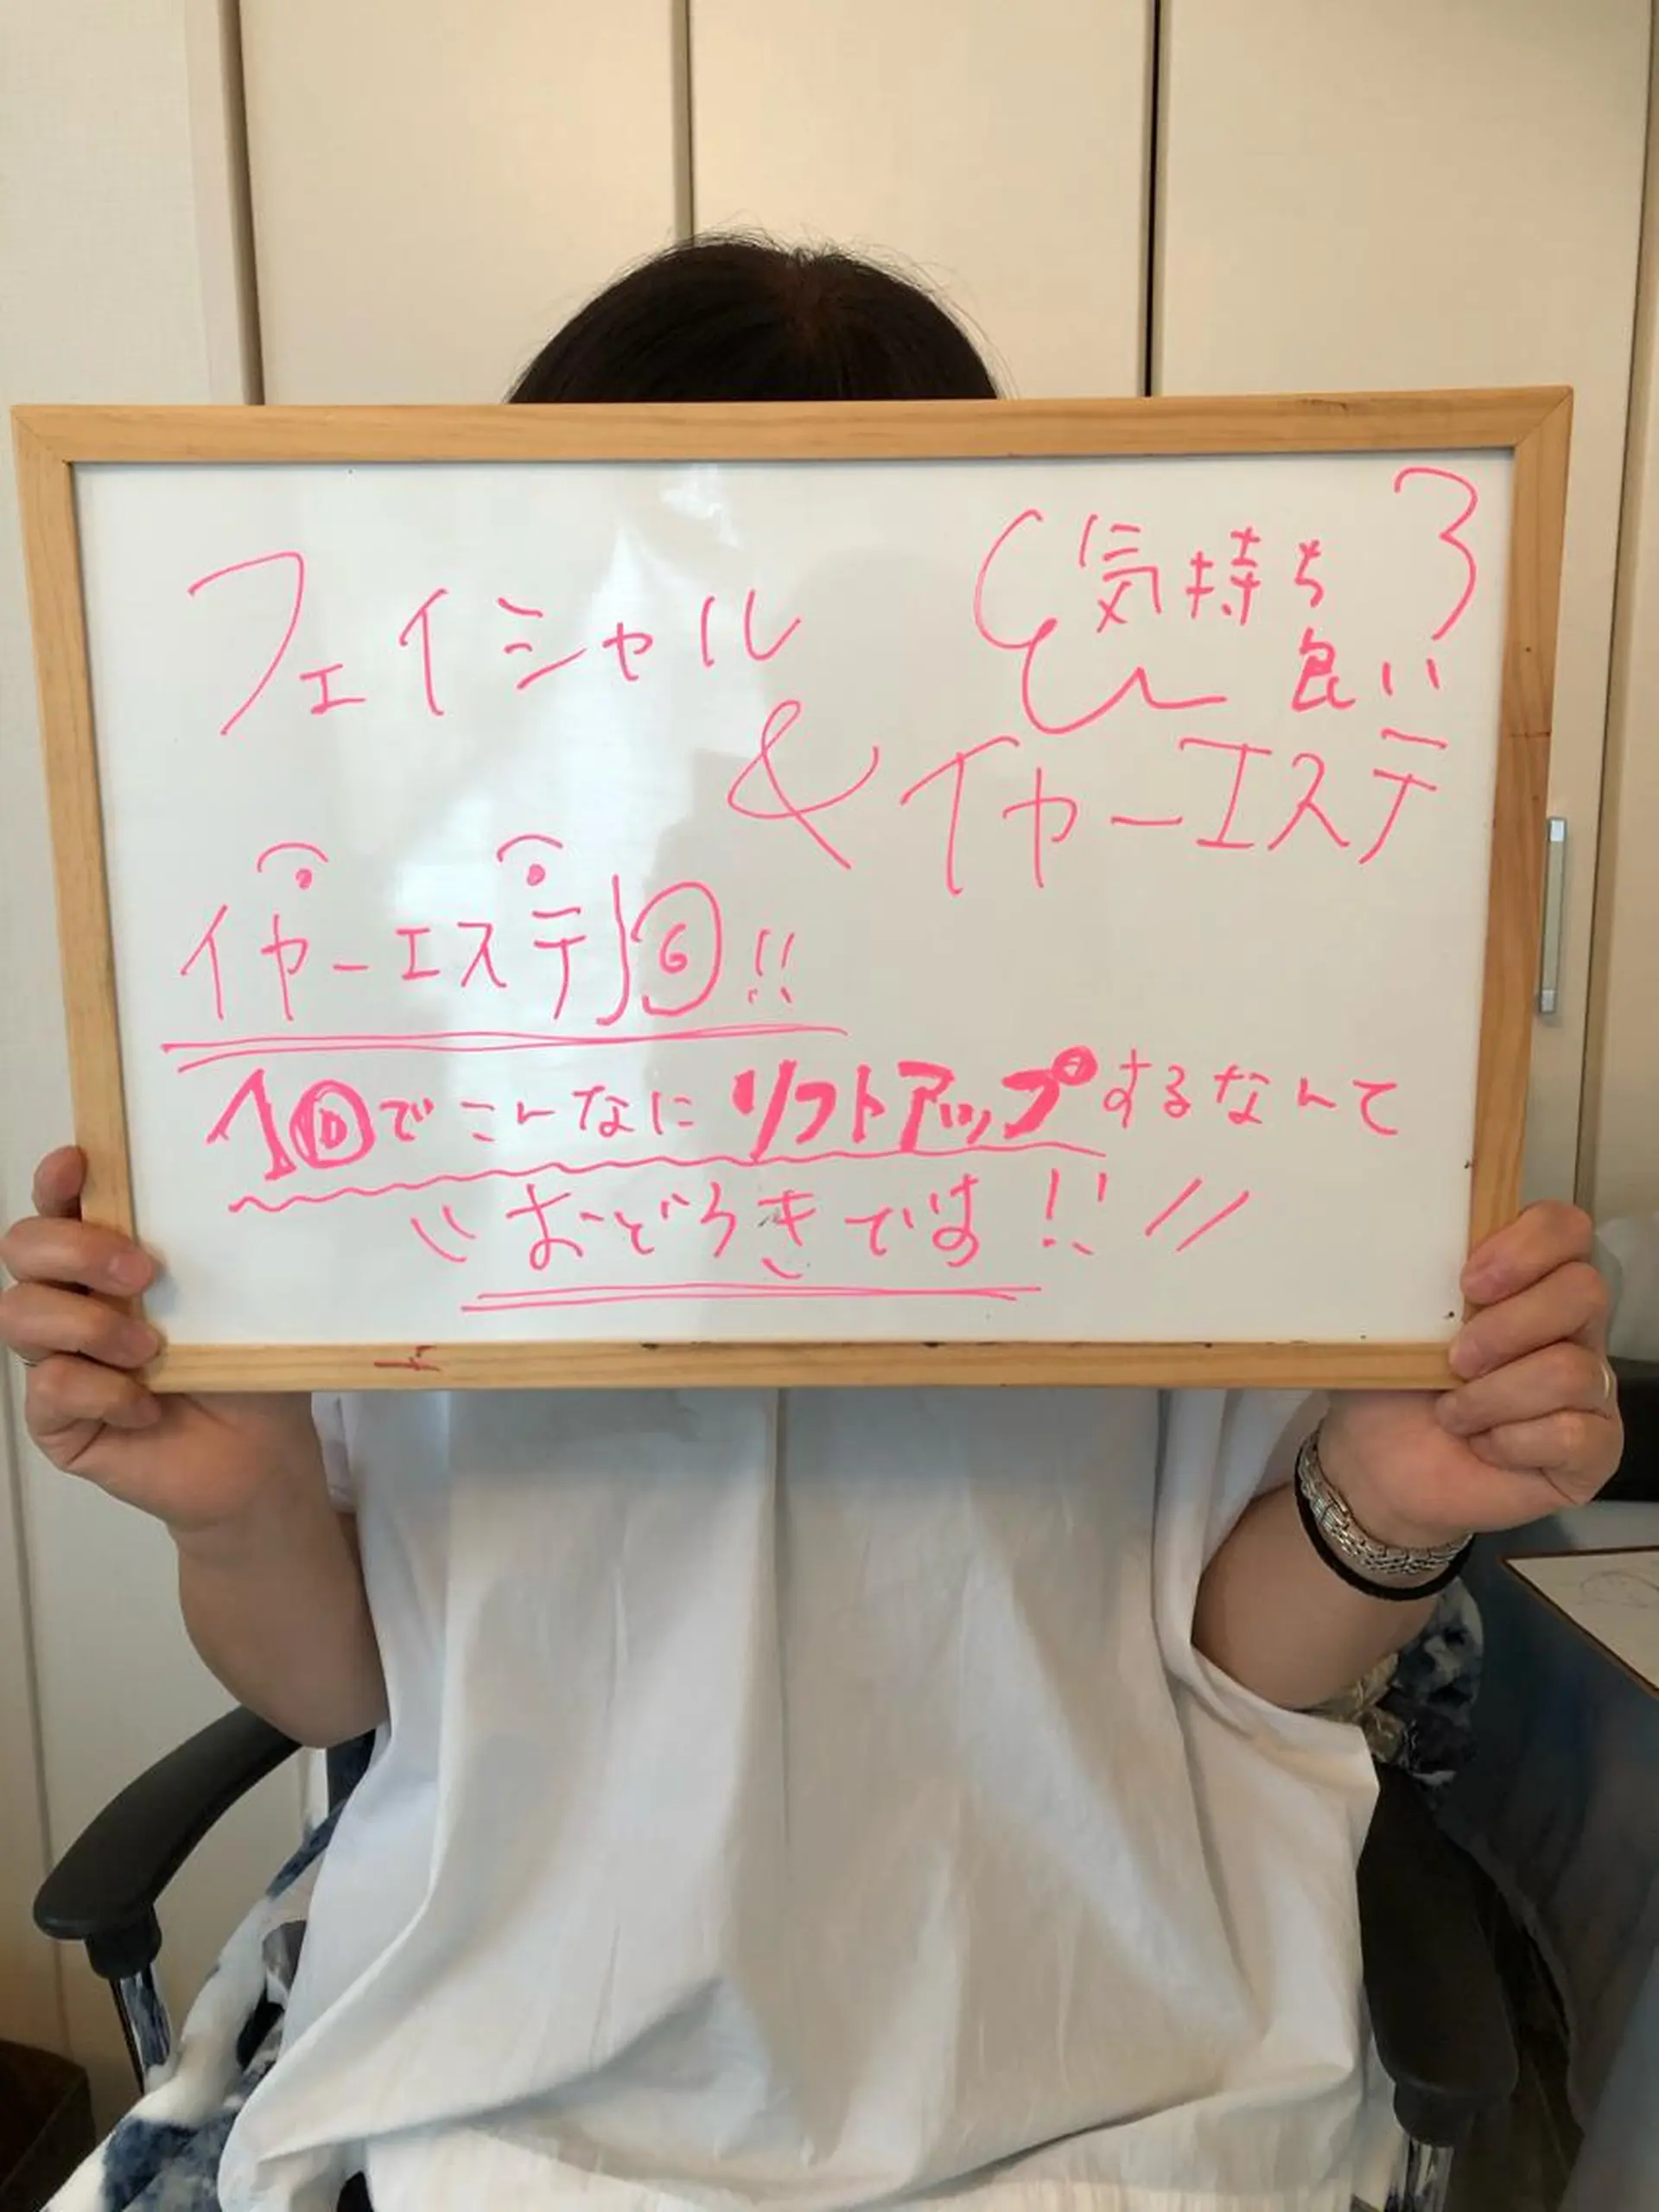 フェイシャル
& イヤーエステ
気持ち
良い
イヤーエステ
!!
1回でこんなにリフトアップするなんて
おどろきです!!